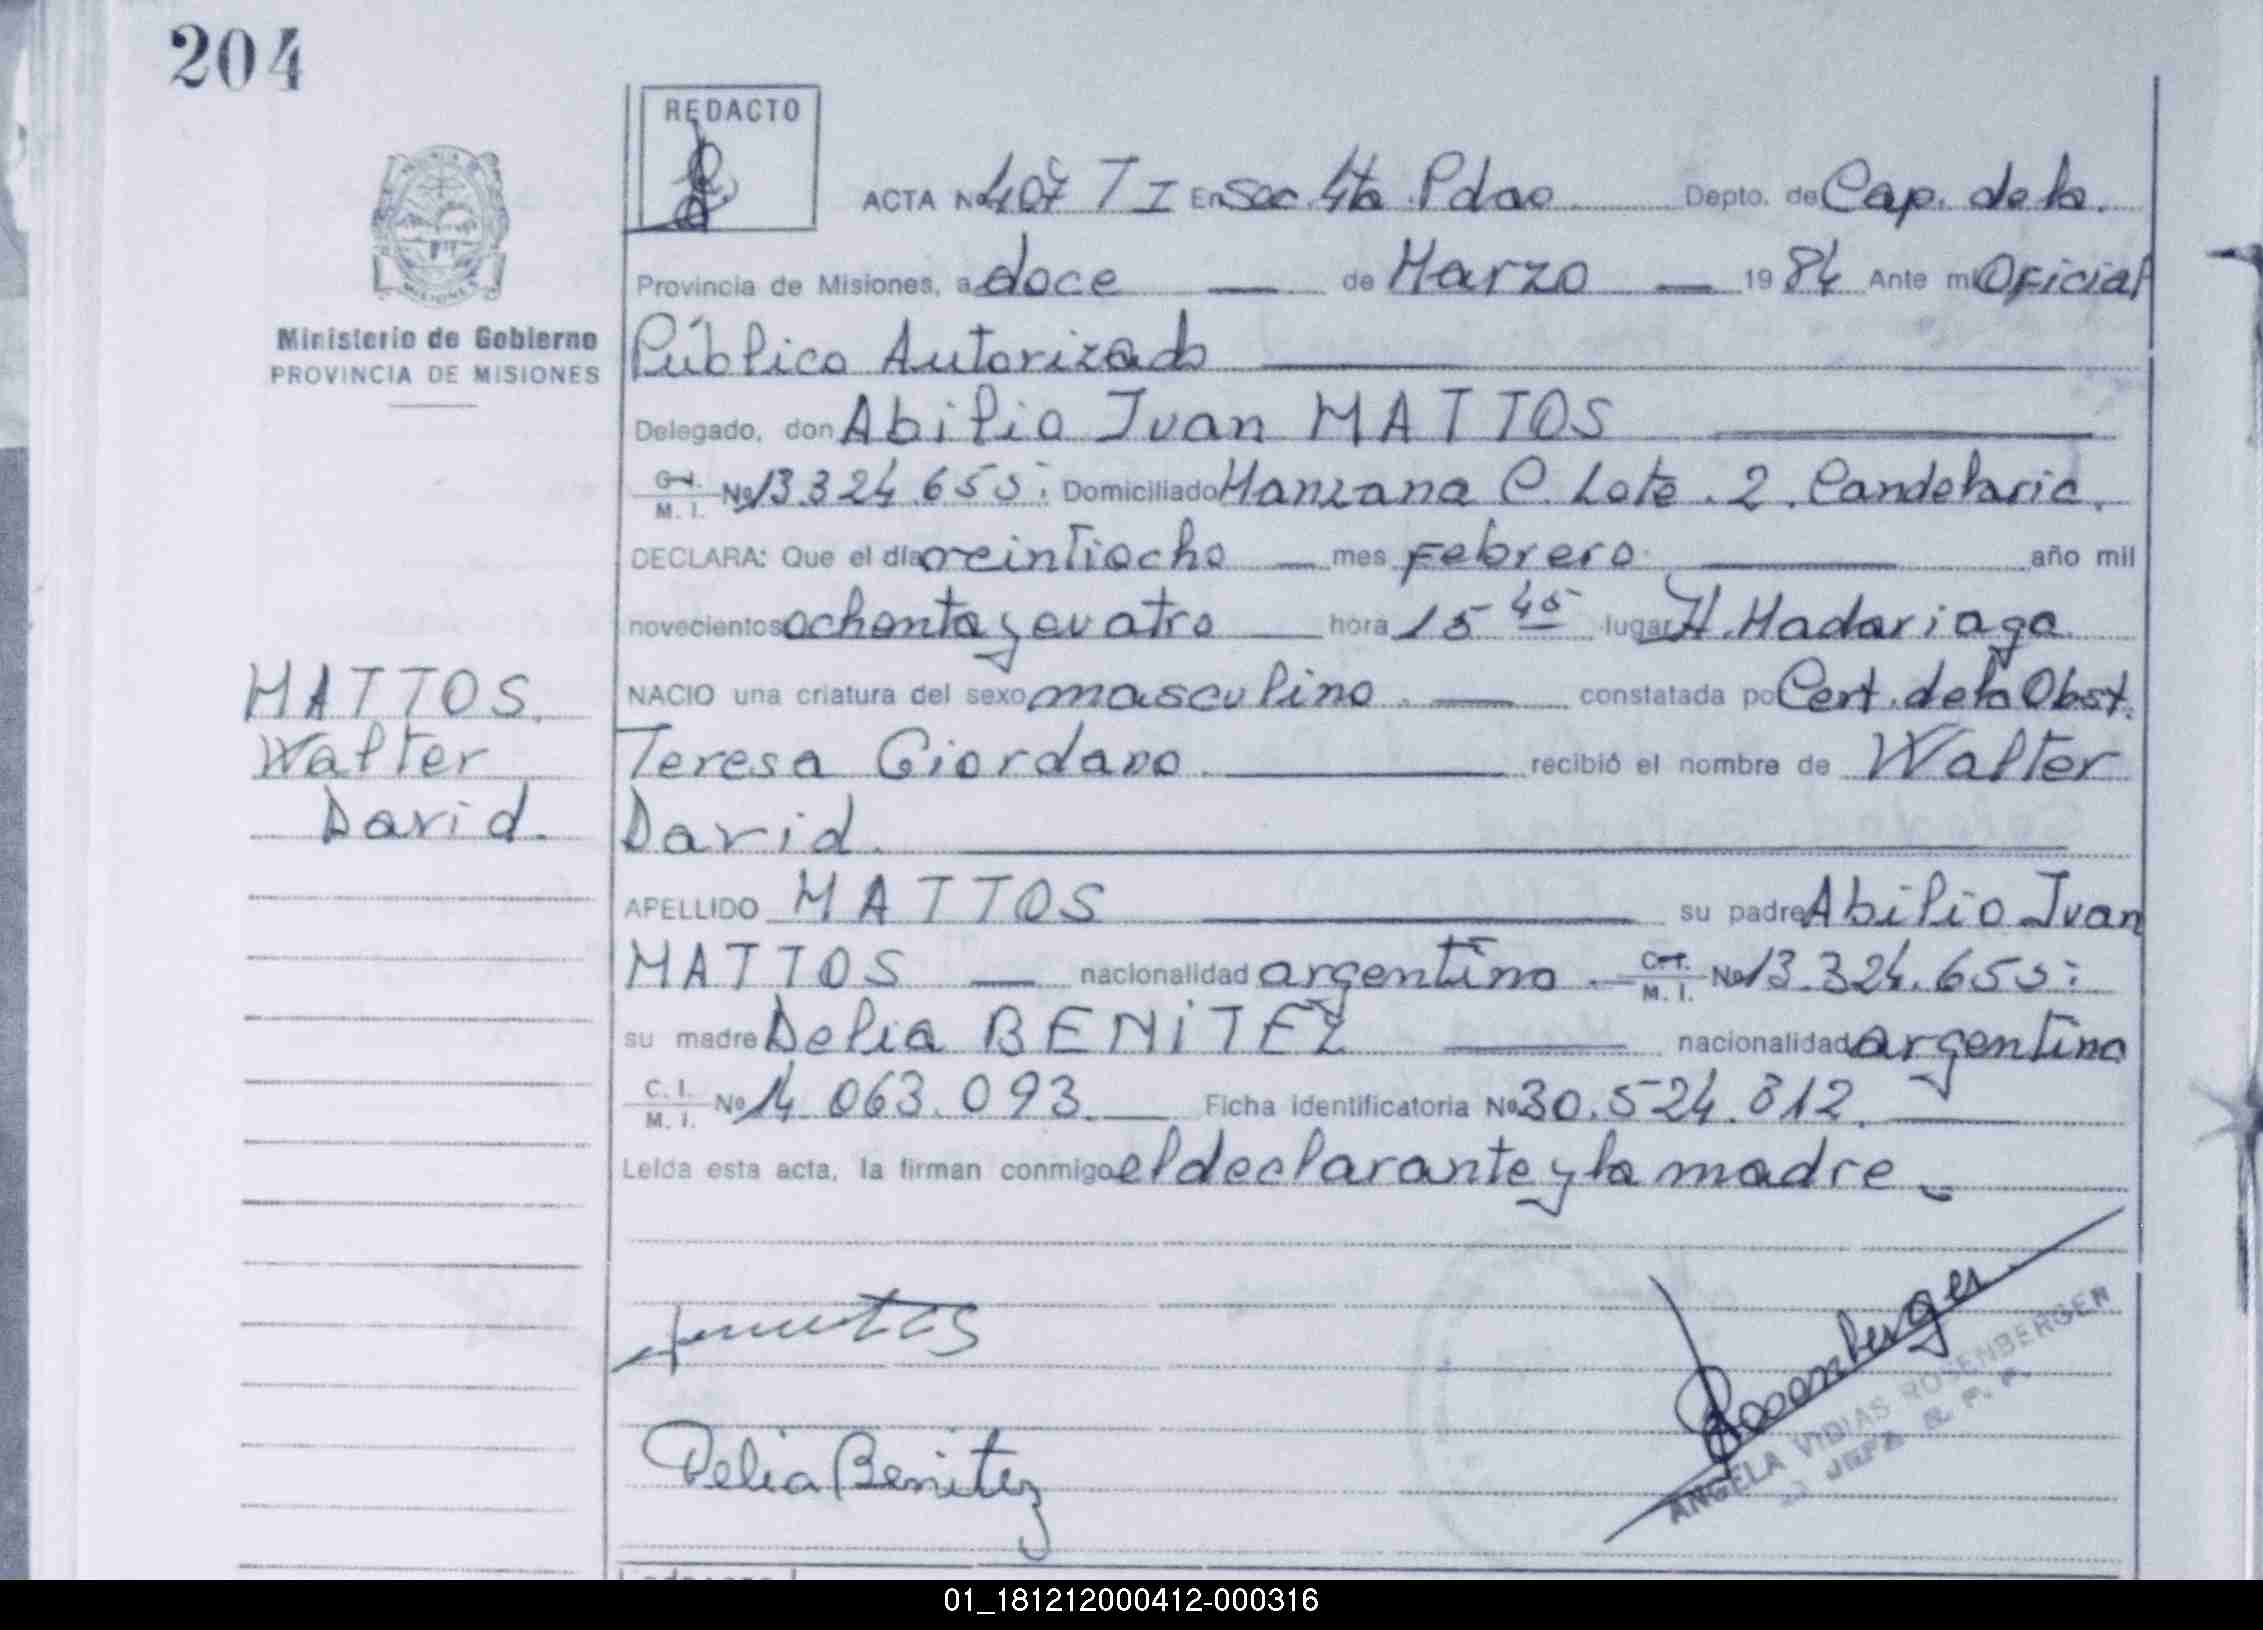 204
REDACTO
ACTA Nº 407 T I En Sec. 4ta Pdas Depto. de Cap. de la.
Provincia de Misiones, a doce de Marzo 1984 Ante mi Oficial
Público Autorizado
Ministerio de Gobierno
PROVINCIA DE MISIONES
Delegado, don Abilio Juan MATTOS
C.I. M. I. Nº 13.324.655. Domiciliado Manzana C. Lote. 2. Candelaria.
DECLARA: Que el día veintiocho mes Febrero año mil
novecientos ochenta y cuatro hora 15 45 lugar H. Madariaga
NACIO una criatura del sexo masculino. constatada po Cert. de la Obst.
Teresa Giordano. recibió el nombre de Walter
David.
MATTOS.
Walter
David.
APELLIDO MATTOS su padre Abilio Juan
MATTOS nacionalidad argentino. C.I. M. I. Nº 13.324.655.
su madre Delia BENITEZ nacionalidad argentina
C. I. M. I. Nº 14.063.093. Ficha identificatoria Nº 30.524.812.
Leída esta acta, la firman conmigo el declarante y la madre
Delia Benitez
Rosenberger
ANGELA VIDIAS ROSENBERGER
JEFA
01_181212000412-000316